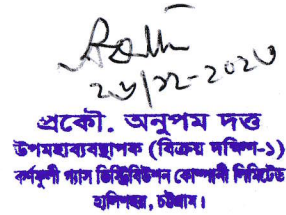 ২৬/১২-২০২৩
প্রকৌ. অনুপম দত্ত
উপমহাব্যবস্থাপক (বিক্রয় দক্ষিণ-১)
কর্ণফুলী গ্যাস ডিস্ট্রিবিউশন কোম্পানী লিমিটেড
হালিশহর, চট্টগ্রাম।